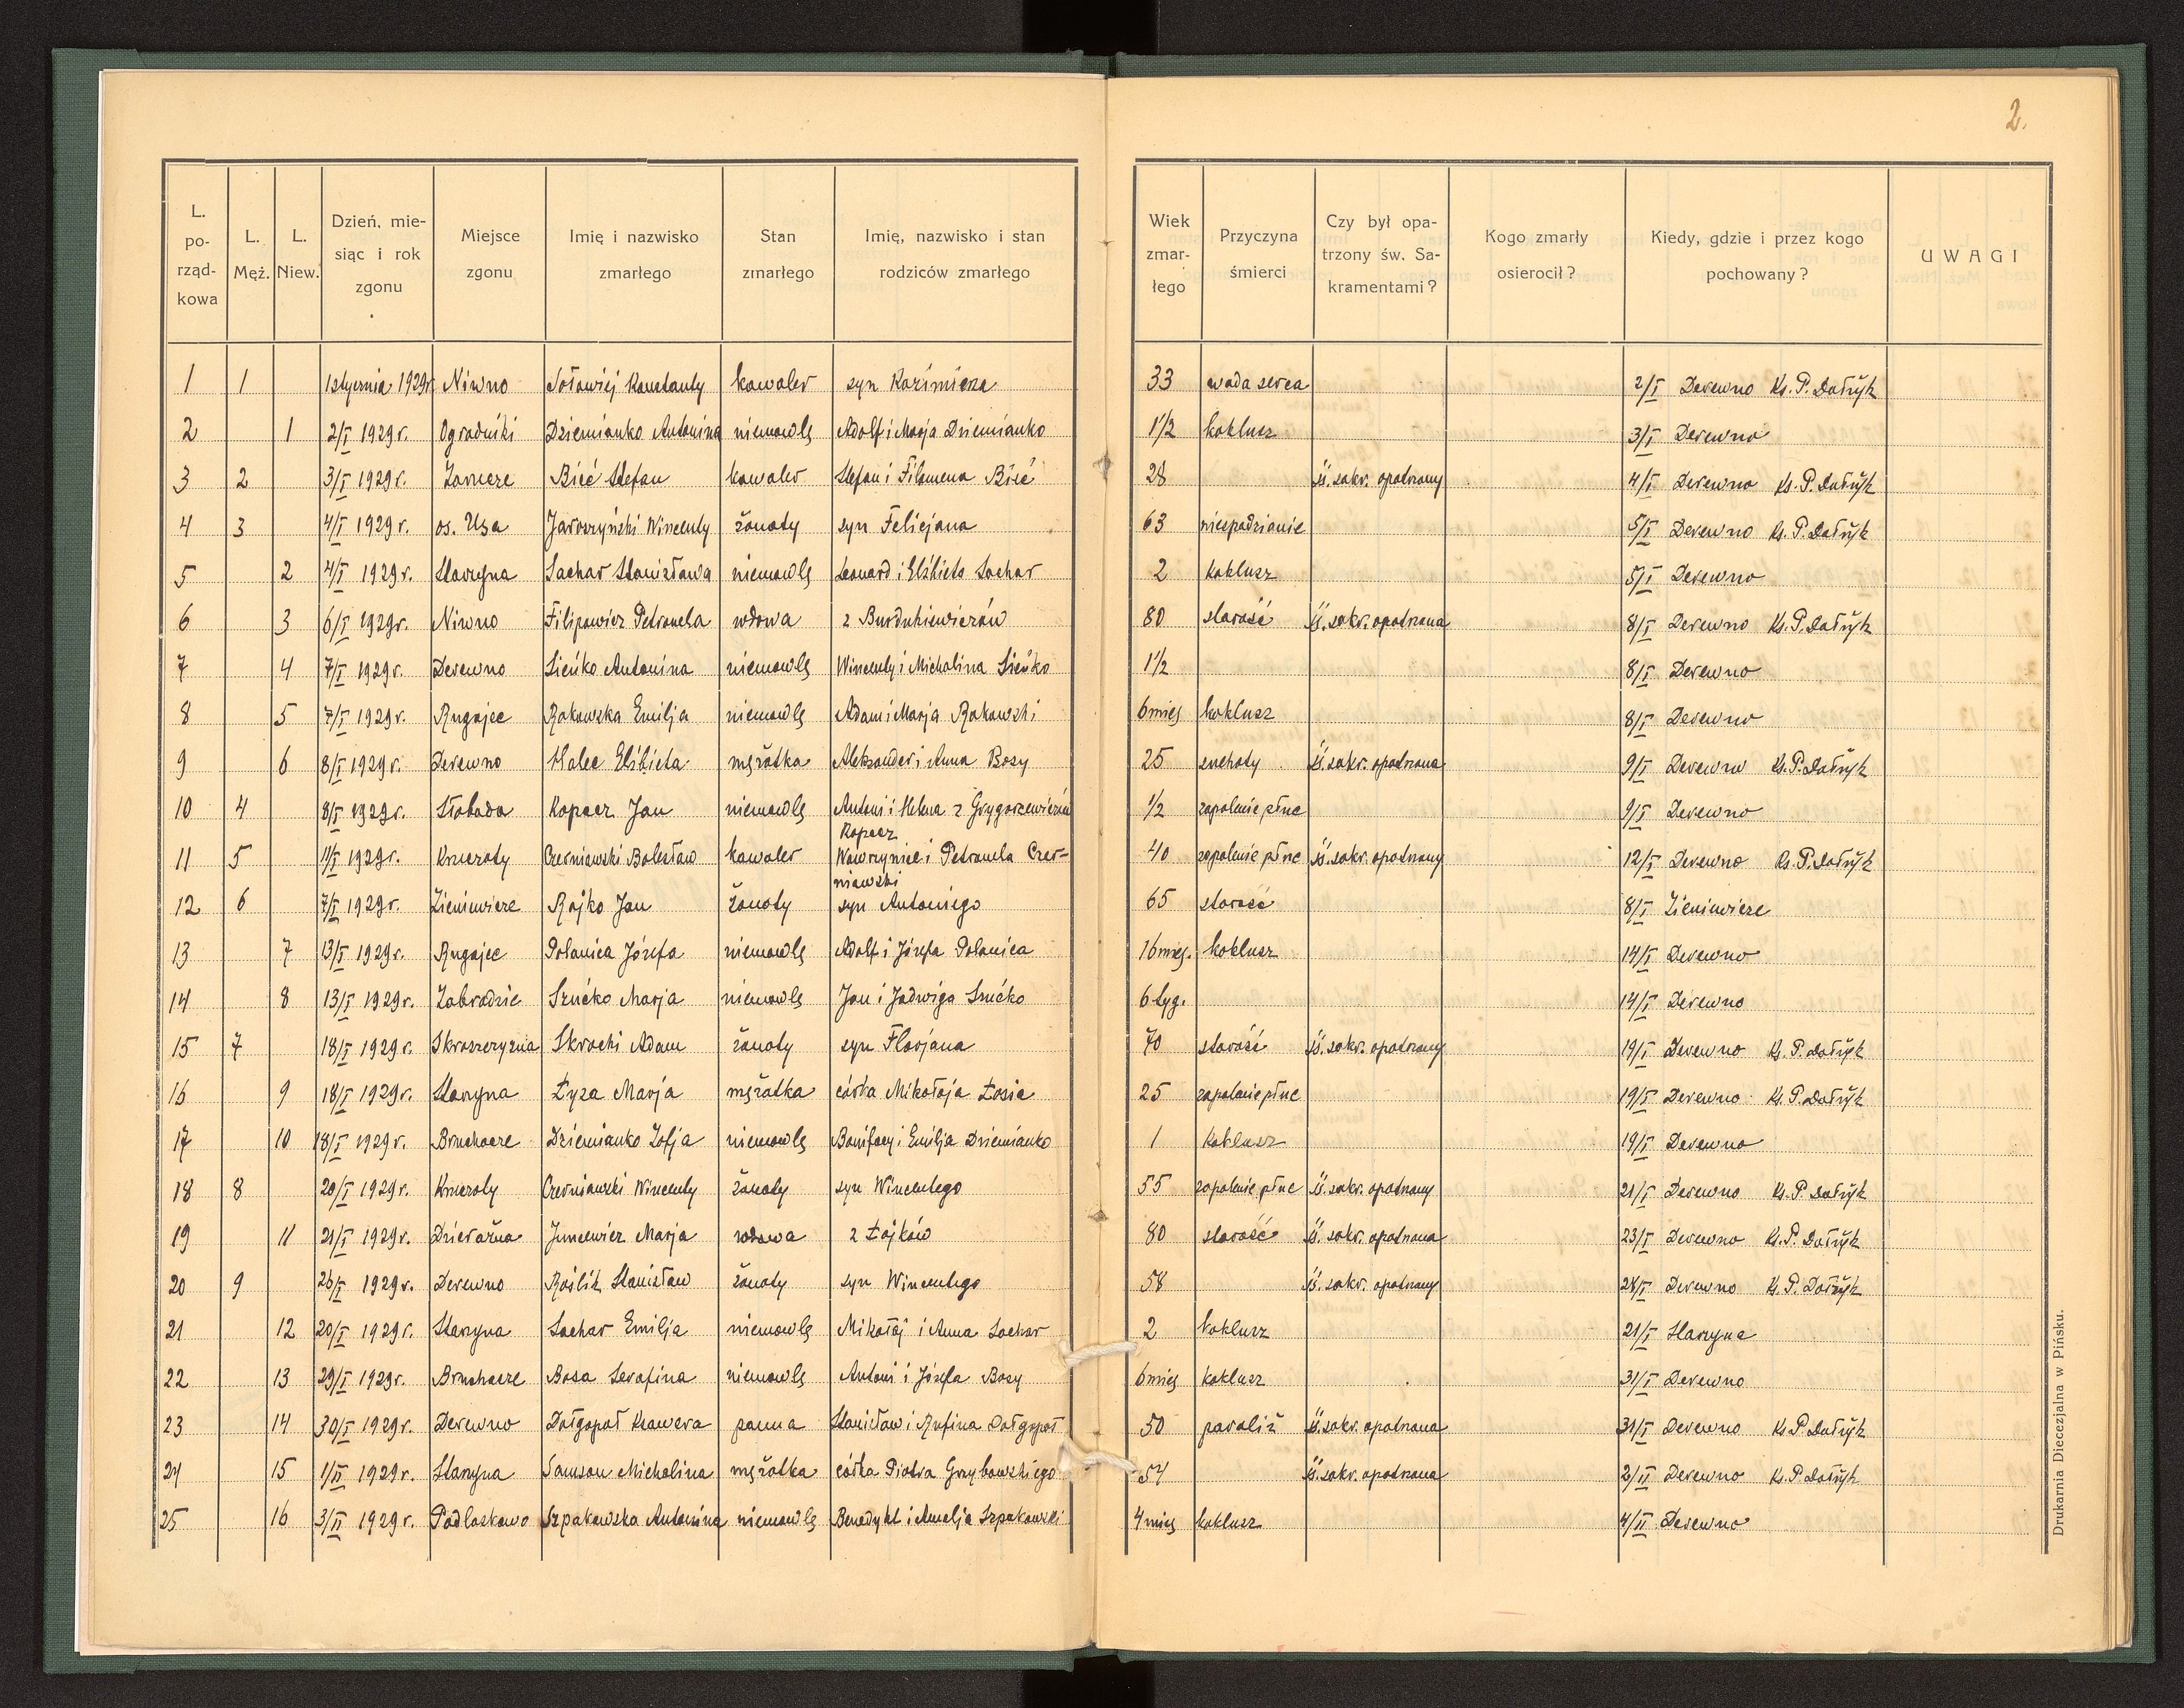 2.
L. po- rząd- kowa | L. Męż. | L. Niew. | Dzień, mie- siąc i rok zgonu | Miejsce zgonu | Imię i nazwisko zmarłego | Stan zmarłego | Imię, nazwisko i stan rodziców zmarłego | Wiek zmar- łego | Przyczyna śmierci | Czy był opa- trzony św. Sa- kramentami? | Kogo zmarły osierocił? | Kiedy, gdzie i przez kogo pochowany? | UWAGI
1 1 1 stycznia 1929r. Niwno Sołowiej Konstanty kawaler syn Kazimierza 33 wada serca 2/I Derewno Ks. P. Dołżyk
2 1 2/I 1929r. Ogrodniki Dziemianko Antonina niemowlę Adolf i Marja Dziemianko 1 1/2 koklusz 3/I Derewno
3 2 3/I 1929r. Zamcze Bić Stefan kawaler Stefan i Filomena Bić 28 śś. sakr. opatrzony 4/I Derewno Ks. P. Dołżyk
4 3 4/I 1929r. os. Usa Jaroszyński Wincenty żonaty syn Felicjana 63 niespodzianie 5/I Derewno Ks. P. Dołżyk
5 2 4/I 1929r. Starzyna Sachar Stanisława niemowlę Leonard i Elżbieta Sachar 2 koklusz 5/I Derewno
6 3 6/I 1929r. Niwno Filipowicz Petronela wdowa z Burdukiewiczów 80 starość śś. sakr. opatrzona 8/I Derewno Ks. P. Dołżyk
7 4 7/I 1929r. Derewno Sieńko Antonina niemowlę Wincenty i Michalina Sieńko 1 1/2 8/I Derewno
8 5 7/I 1929r. Rugajec Rakowska Emilja niemowlę Adam i Marja Rakowski 6 mieś koklusz 8/I Derewno
9 6 8/I 1929r. Derewno Halec Elżbieta mężatka Aleksander i Anna Bosy 25 suchoty śś. sakr. opatrzona 9/I Derewno Ks. P. Dołżyk
10 4 8/I 1929r. Słoboda Kopacz Jan niemowlę Antoni i Helena z Grygorcewiczów 1/2 zapalenie płuc 9/I Derewno
Kopacz
11 5 11/I 1929r. Kruczoty Czerniawski Bolesław kawaler Wawrzyniec i Petronela Czer- 40 zapalenie płuc śś. sakr. opatrzony 12/I Derewno Ks. P. Dołżyk
niawski
12 6 7/I 1929r. Zieniewicze Rojko Jan żonaty syn Antoniego 65 starość 8/I Zieniewicze
13 7 13/I 1929r. Rugajec Polanica Józefa niemowlę Adolf i Józefa Polanica 16 mieś. koklusz 14/I Derewno
14 8 13/I 1929r. Zabrodzie Szućko Marja niemowlę Jan i Jadwiga Szućko 6 tyg. 14/I Derewno
15 7 18/I 1929r. Skroszczyzna Skrocki Adam żonaty syn Florjana 70 starość śś. sakr. opatrzony 19/I Derewno Ks. P. Dołżyk
16 9 18/I 1929r. Starzyna Łyza Marja mężatka córka Mikołaja Łosia 25 zapalenie płuc 19/I Derewno Ks. P. Dołżyk
17 10 18/I 1929r. Bruchacze Dziemianko Zofja niemowlę Bonifacy i Emilja Dziemianko 1 koklusz 19/I Derewno
18 8 20/I 1929r. Kruczoty Czerniawski Wincenty żonaty syn Wincentego 55 zapalenie płuc śś. sakr. opatrzony 21/I Derewno Ks. P. Dołżyk
19 11 21/I 1929r. Dzierażna Juncewicz Marja wdowa z Łojków 80 starość śś. sakr. opatrzona 23/I Derewno Ks. P. Dołżyk
20 9 26/I 1929r. Derewno Roślik Stanisław żonaty syn Wincentego 58 śś. sakr. opatrzony 28/I Derewno Ks. P. Dołżyk
21 12 20/I 1929r. Starzyna Sachar Emilja niemowlę Mikołaj i Anna Sachar 2 koklusz 21/I Starzyna
22 13 29/I 1929r. Bruchacze Bosa Serafina niemowlę Antoni i Józefa Bosy 6 mieś koklusz 31/I Derewno
23 14 30/I 1929r. Derewno Dołgopoł Ksawera panna Stanisław i Rufina Dołgopoł 50 paraliż śś. sakr. opatrzona 31/I Derewno Ks. P. Dołżyk
24 15 1/II 1929r. Starzyna Samson Michalina mężatka córka Piotra Grzybowskiego 54 śś. sakr. opatrzona 2/II Derewno Ks. P. Dołżyk
25 16 3/II 1929r. Podlaskowo Szpakowska Antonina niemowlę Benedykt i Amelja Szpakowski 4 mieś koklusz 4/II Derewno
Drukarnia Diecezjalna w Pińsku.